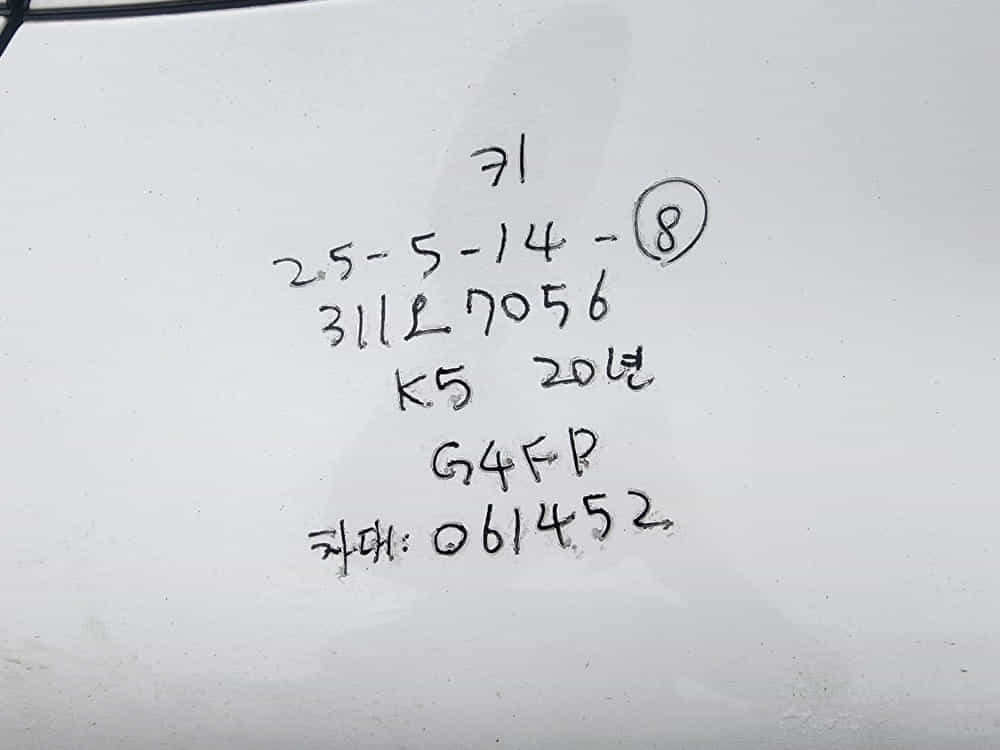 키
25-5-14-⑧
311오7056
K5 20년
G4FP
차대: 061452